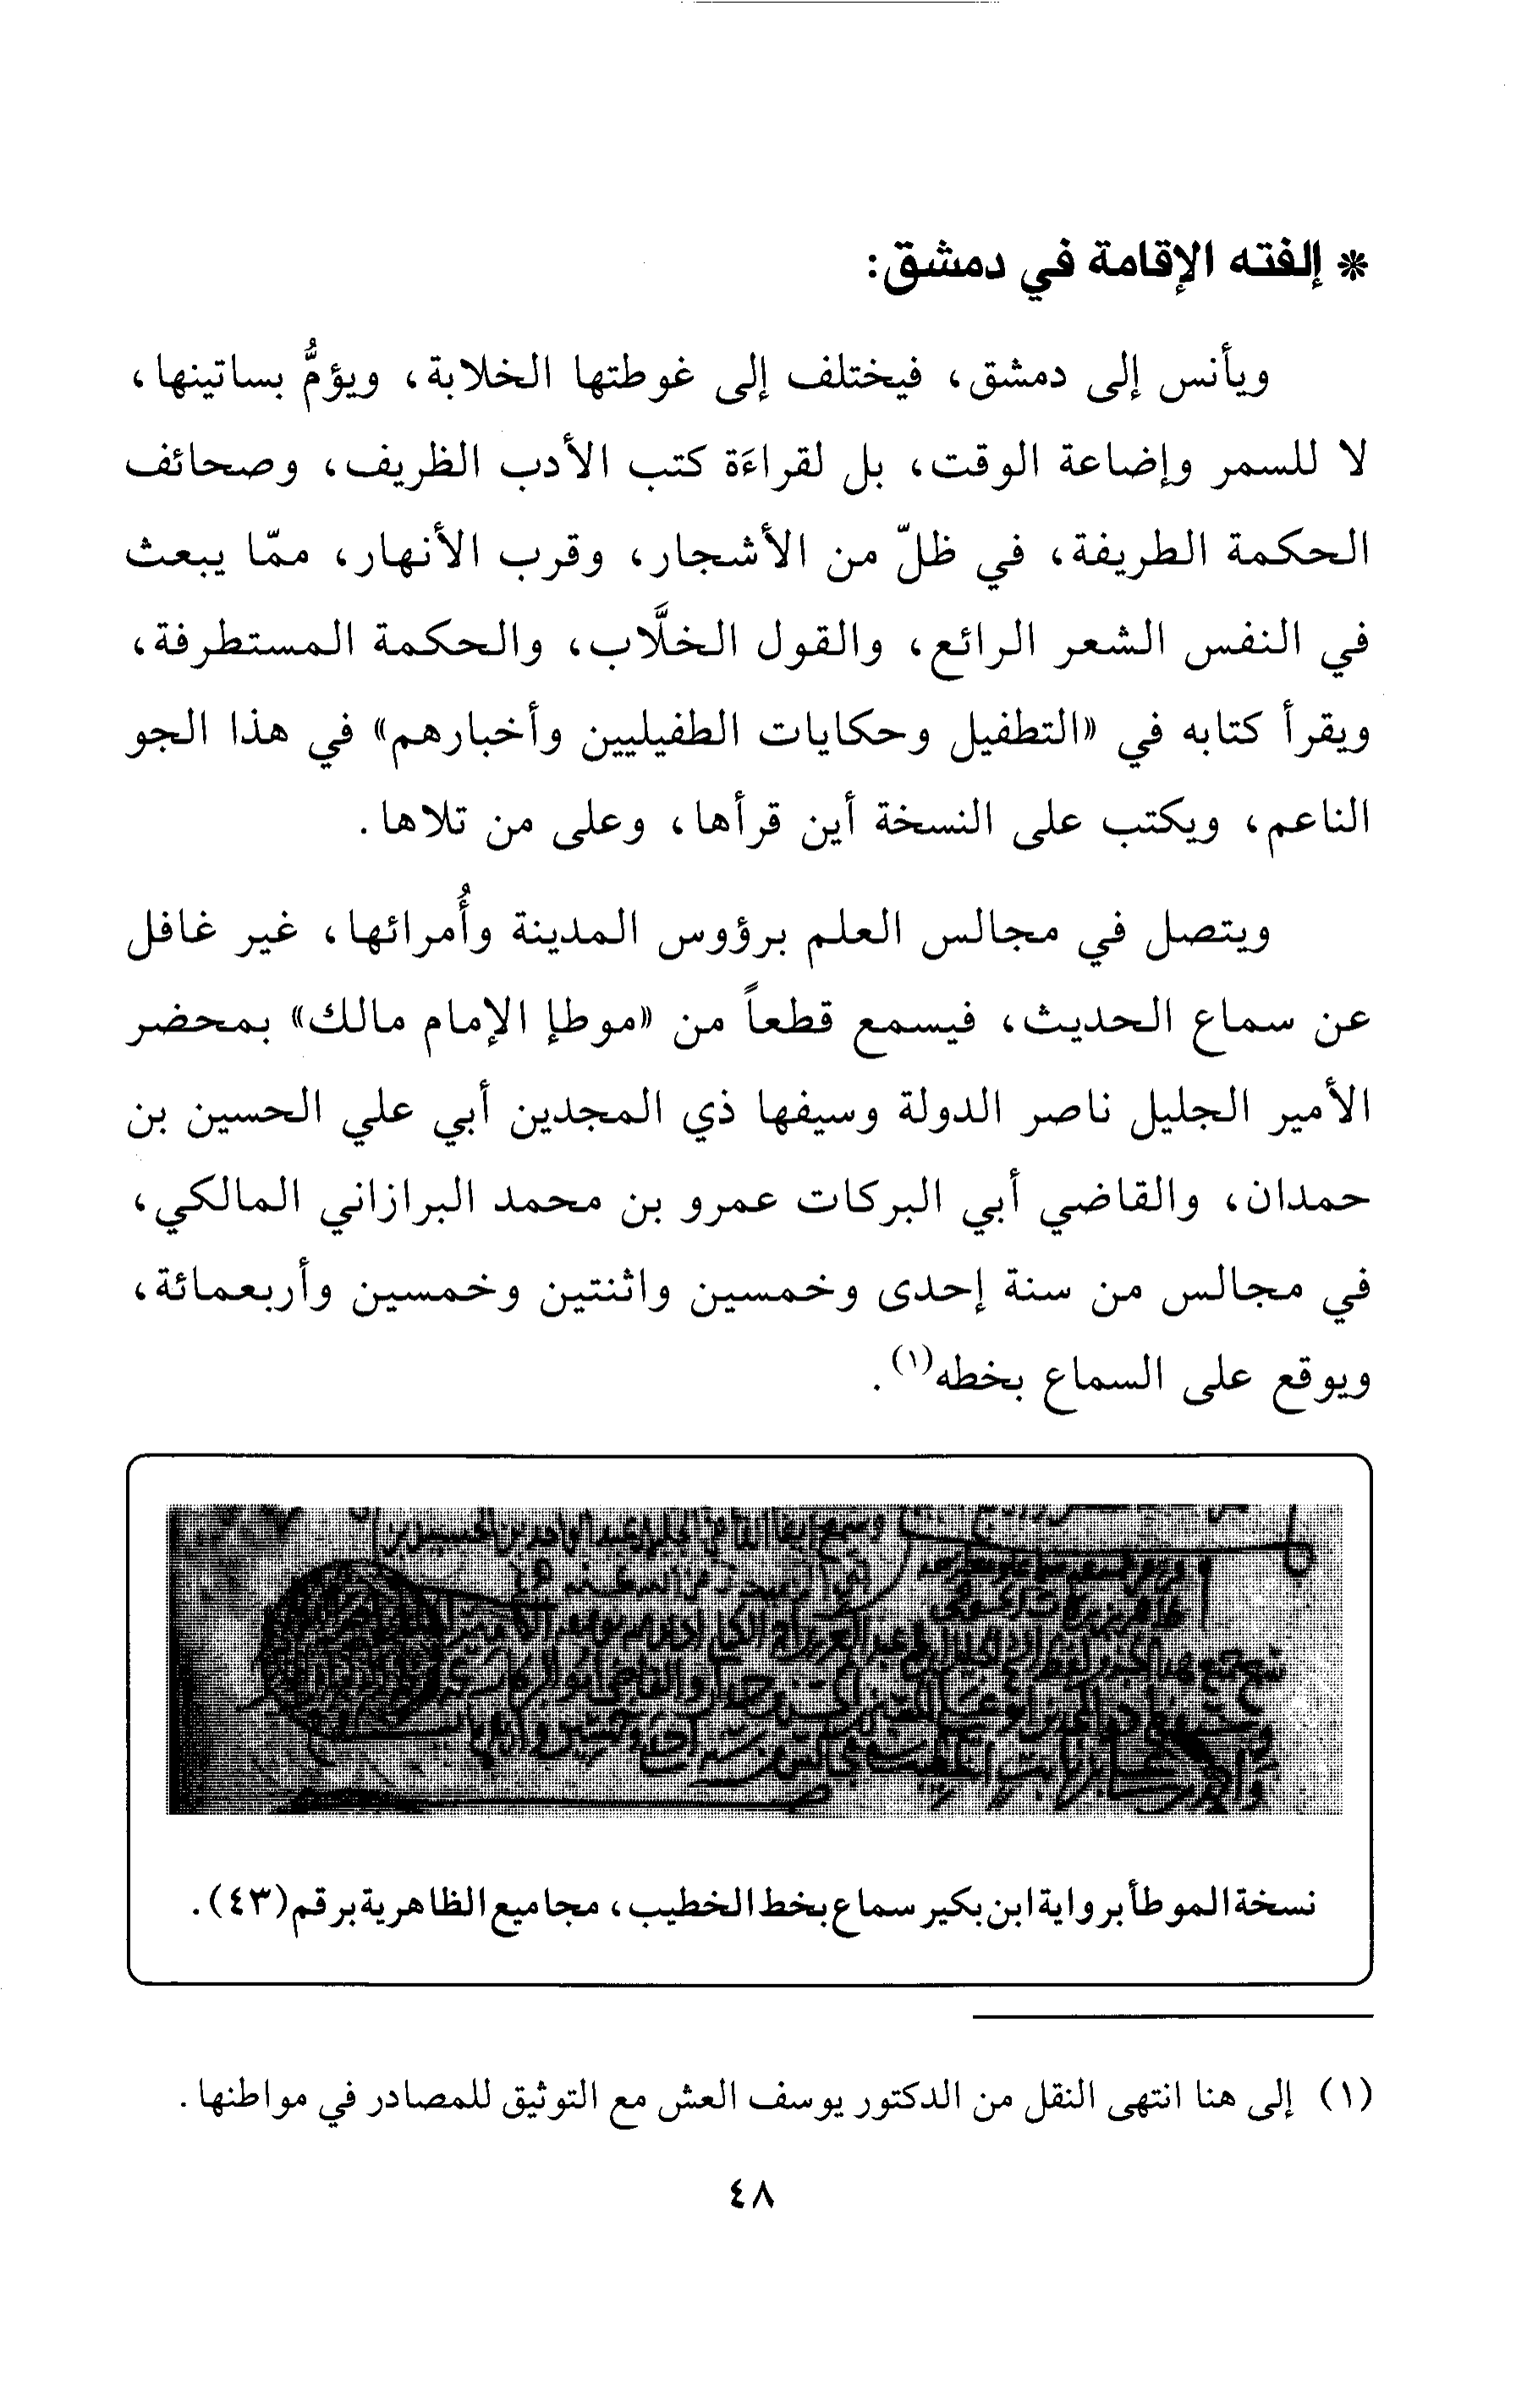 * إلفته الإقامة في دمشق:
ويأنس إلى دمشق، فيختلف إلى غوطتها الخلابة، ويؤمُّ بساتينها،
لا للسمر وإضاعة الوقت، بل لقراءَة كتب الأدب الظريف، وصحائف
الحكمة الطريفة، في ظلّ من الأشجار، وقرب الأنهار، ممّا يبعث
في النفس الشعر الرائع، والقول الخلَّاب، والحكمة المستطرفة،
ويقرأ كتابه في «التطفيل وحكايات الطفيليين وأخبارهم» في هذا الجو
الناعم، ويكتب على النسخة أين قرأها، وعلى من تلاها.
ويتصل في مجالس العلم برؤوس المدينة وأُمرائها، غير غافل
عن سماع الحديث، فيسمع قطعاً من «موطإ الإمام مالك» بمحضر
الأمير الجليل ناصر الدولة وسيفها ذي المجدين أبي علي الحسين بن
حمدان، والقاضي أبي البركات عمرو بن محمد البرازاني المالكي،
في مجالس من سنة إحدى وخمسين واثنتين وخمسين وأربعمائة،
ويوقع على السماع بخطه(١).
نسخة الموطأ برواية ابن بكير سماع بخط الخطيب، مجاميع الظاهرية برقم (٤٣).
(١) إلى هنا انتهى النقل من الدكتور يوسف العش مع التوثيق للمصادر في مواطنها.
٤٨